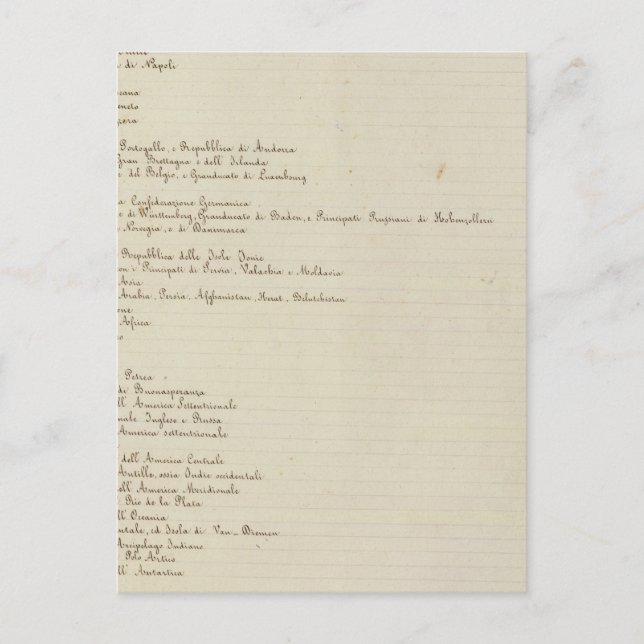 di Napoli
Portogallo, e Repubblica di Andorra
Gran Brettagna e dell' Irlanda
e del Belgio, e Granducato di Luxenbourg
a Confederazione Germanica
e di Württemberg, Granducato di Baden, e Principati Prussiani di Hohenzollern
Norvegia, e di Danimarca
Repubblica delle Isole Jonie
on i Principati di Servia, Valachia e Moldavia
Asia
Arabia, Persia, Afghanistan, Herat, Belutchistan
one
Africa
Petrea
di Buonasperanza
ell' America Settentrionale
nale Inglese e Russa
America settentrionale
dell' America Centrale
Antille, ossia Indie occidentali
ell' America Meridionale
Rio de la Plata
ell' Oceania
ntale, ed Isola di Van-Diemen
Arcipelago Indiano
Polo Artico
ell' Antartica